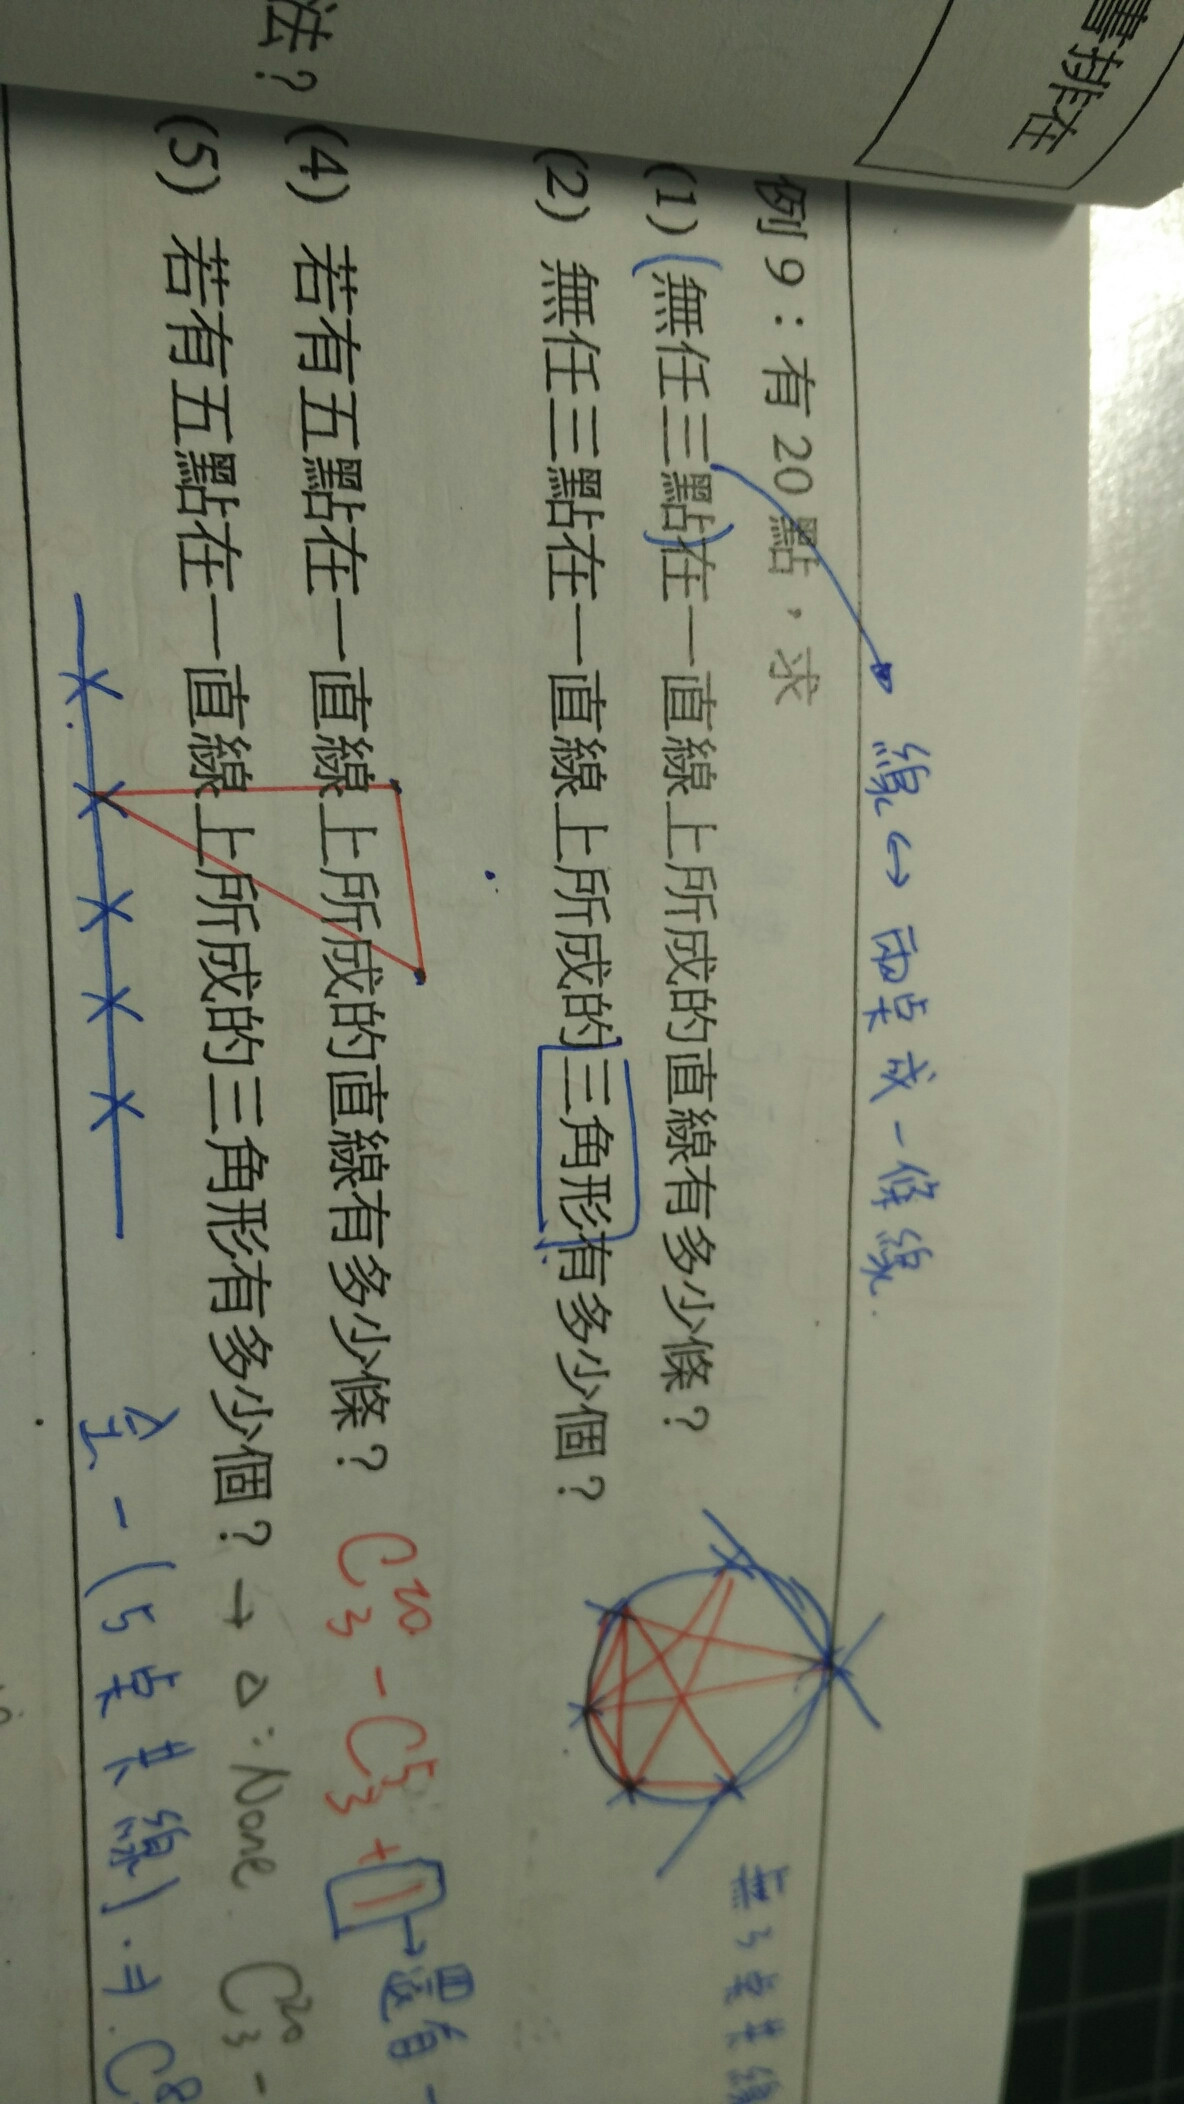 書排在
法？
線↔兩点成一條線.
例 9：有 20 點，求
(1) (無任三點)在一直線上所成的直線有多少條？
無3点共線
(2) 無任三點在一直線上所成的三角形有多少個？
(4) 若有五點在一直線上所成的直線有多少條？ C²⁰₃ - C⁵₃ + 1 → 還有一
(5) 若有五點在一直線上所成的三角形有多少個？ → △:None C²⁰₃ -
全 - (5点共線)